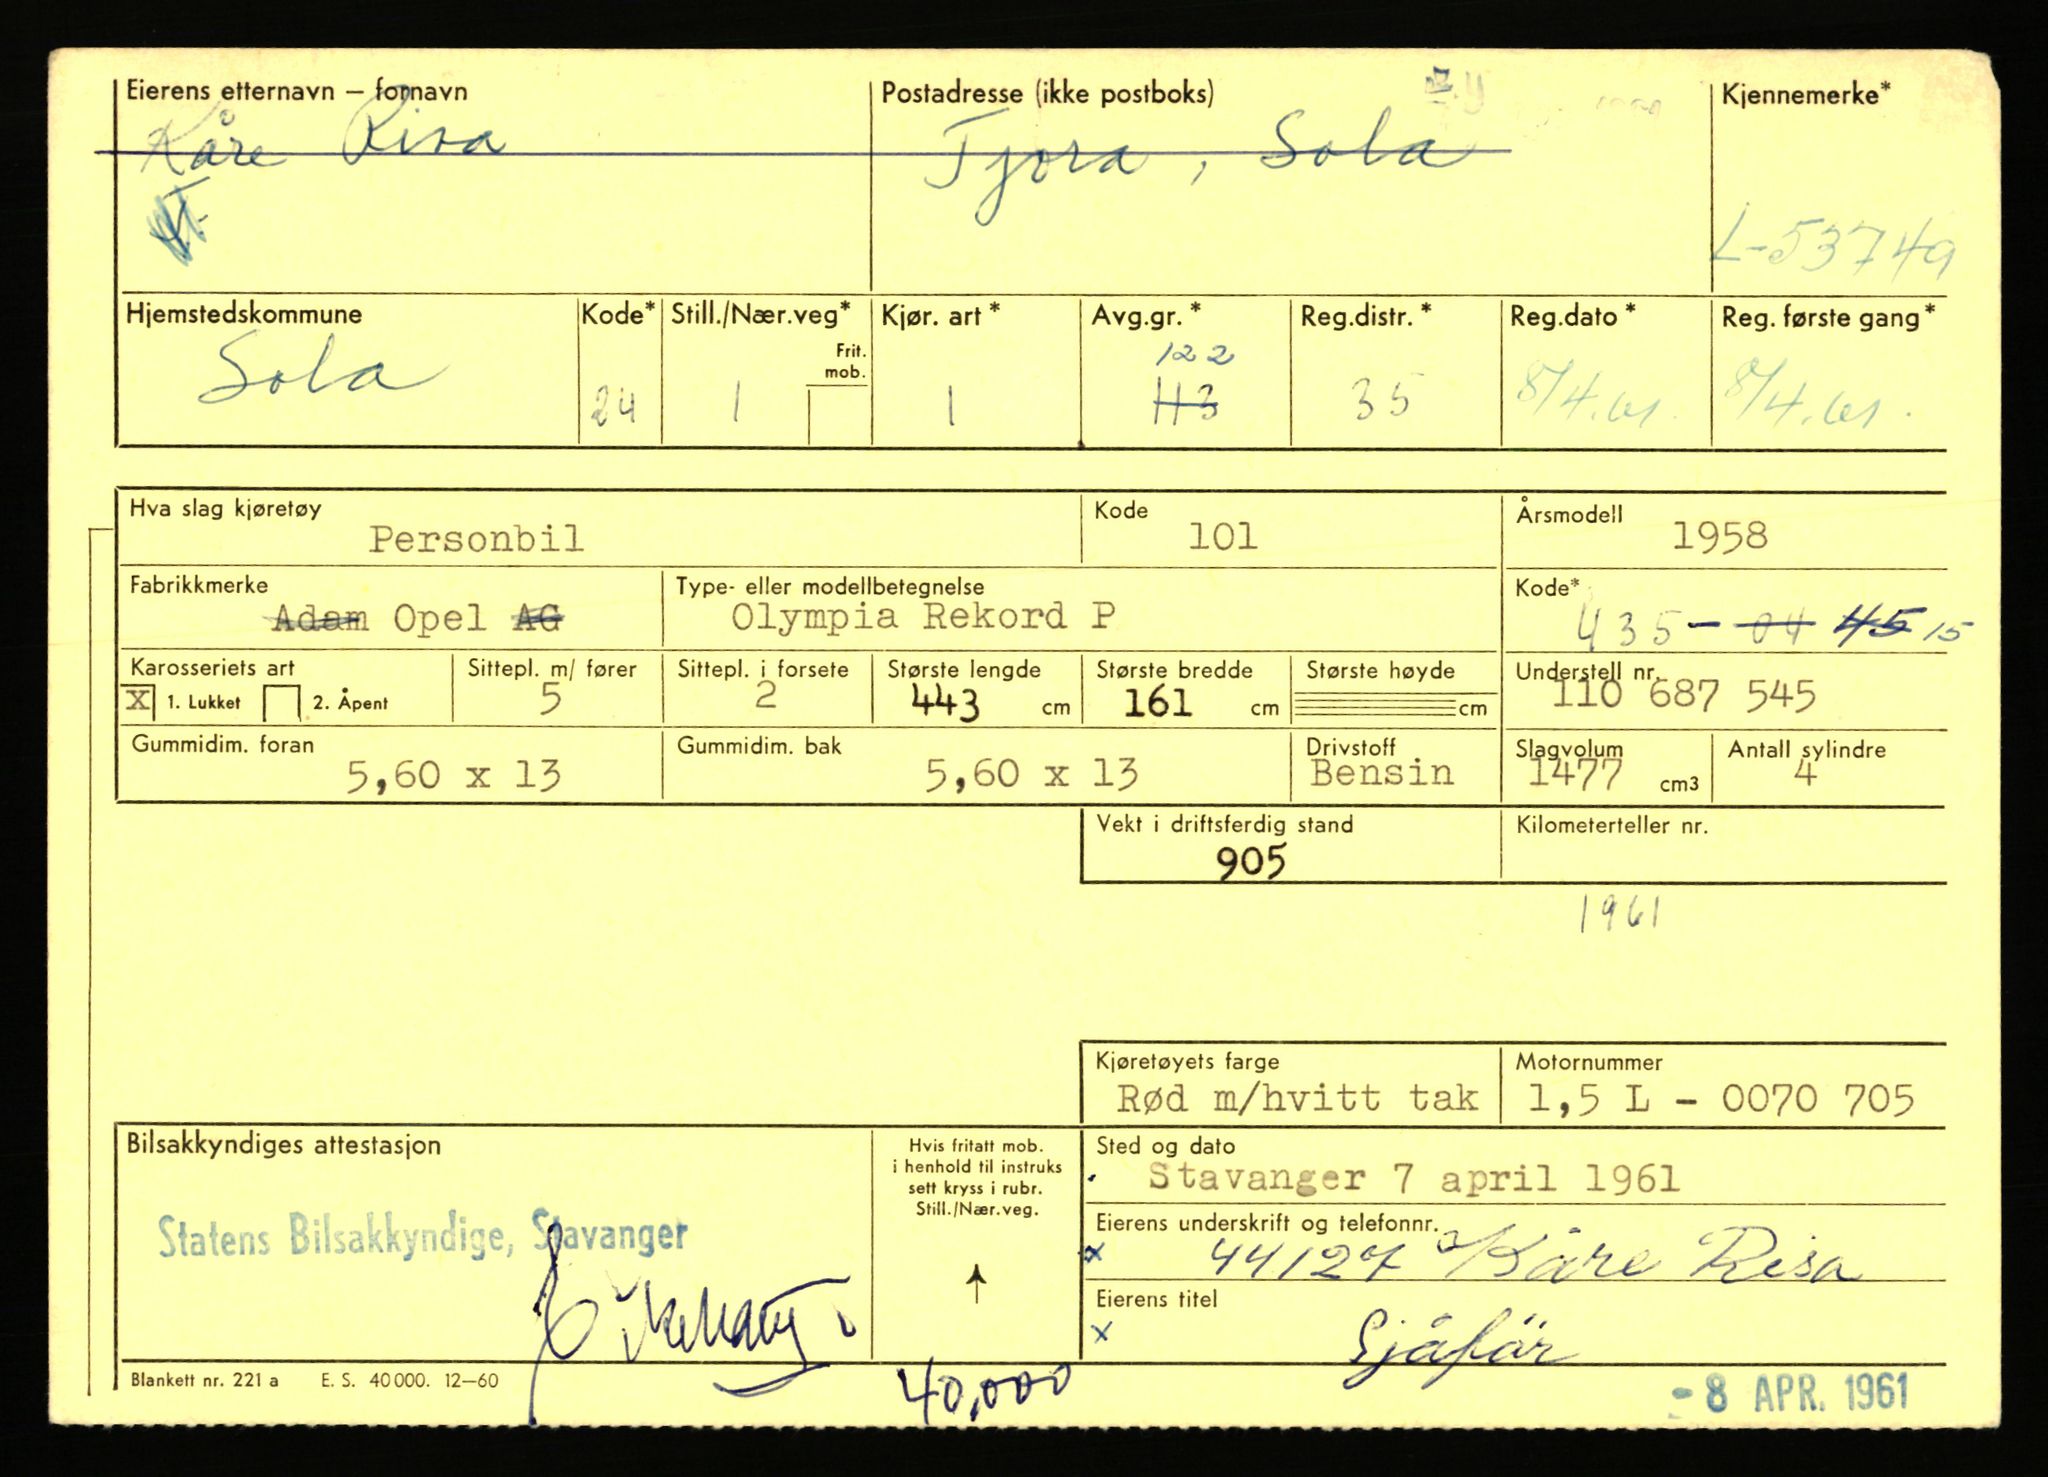 Eierens etternavn — fornavn Postadresse (ikke postboks) Kjennemerke*
Kåre Risa Tjora, Sola
L-53749
Hjemstedskommune Kode* Still./Nær.veg* Kjør. art* Avg.gr.* Reg.distr.* Reg.dato* Reg. første gang*
Frit. mob.
122
Sola 24 1 1 H3 35 8/4.61. 8/4.61.
Hva slag kjøretøy Kode Årsmodell
Personbil 101 1958
Fabrikkmerke Type- eller modellbetegnelse Kode*
Adam Opel AG Olympia Rekord P 435 - 04 45 15
Karosseriets art Sittepl. m/ fører Sittepl. i forsete Største lengde Største bredde Største høyde Understell nr.
X 1. Lukket 2. Åpent 5 2 443 cm 161 cm cm 110 687 545
Gummidim. foran Gummidim. bak Drivstoff Slagvolum Antall sylindre
5,60 x 13 5,60 x 13 Bensin 1477 cm3 4
Vekt i driftsferdig stand Kilometerteller nr.
905
1961
Kjøretøyets farge Motornummer
Rød m/hvitt tak 1,5 L - 0070 705
Bilsakkyndiges attestasjon
Hvis fritatt mob.
i henhold til instruks
sett kryss i rubr.
Still./Nær.veg.
Sted og dato
Stavanger 7 april 1961
Statens Bilsakkyndige, Stavanger
Eierens underskrift og telefonnr.
x 44127 Kåre Risa
Eierens titel
x Sjåfør
Blankett nr. 221 a E. S. 40 000. 12—60
40,000
- 8 APR. 1961